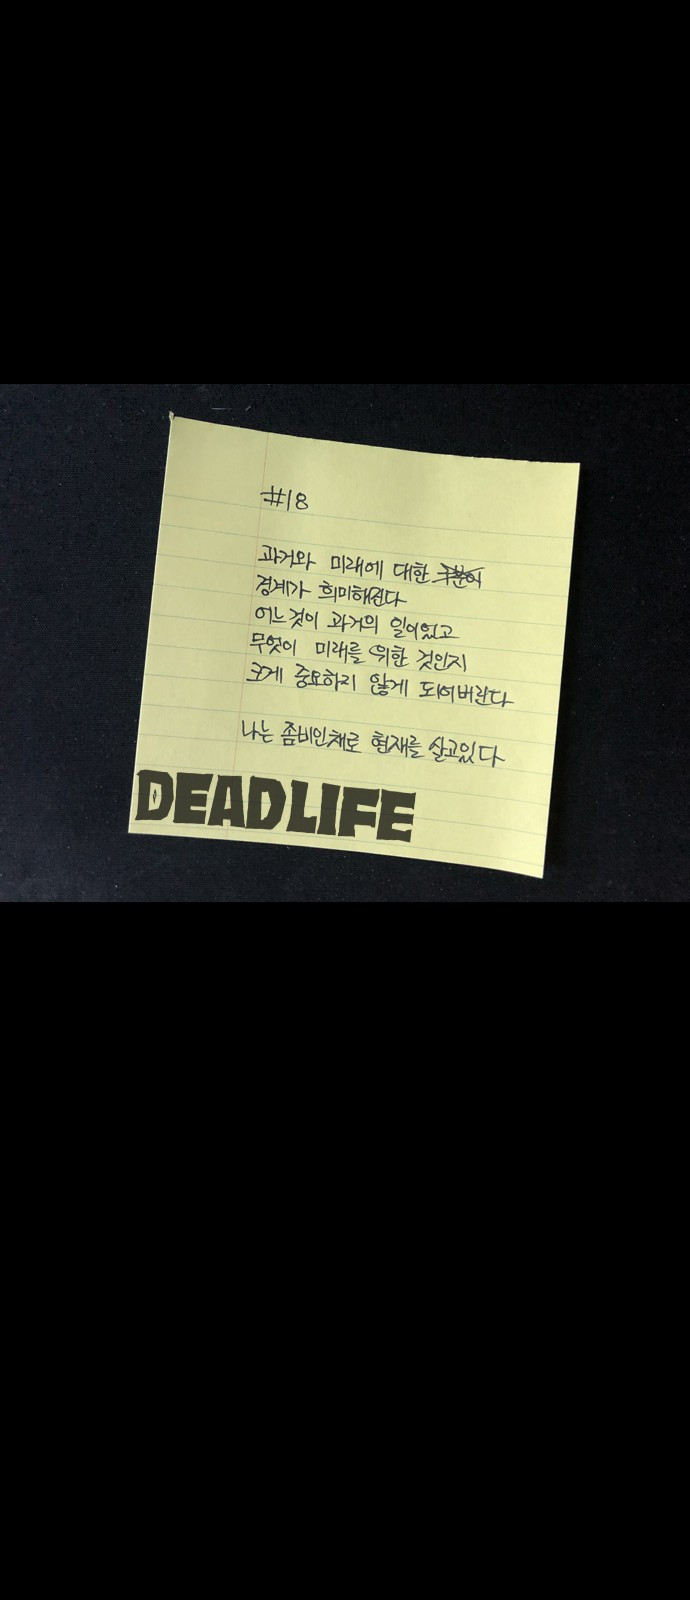 #18
과거와 미래에 대한 구분이
경계가 희미해진다
어느것이 과거의 일이었고
무엇이 미래를 위한 것인지
크게 중요하지 않게 되어버린다
나는 좀비인채로 현재를 살고있다
DEAD LIFE